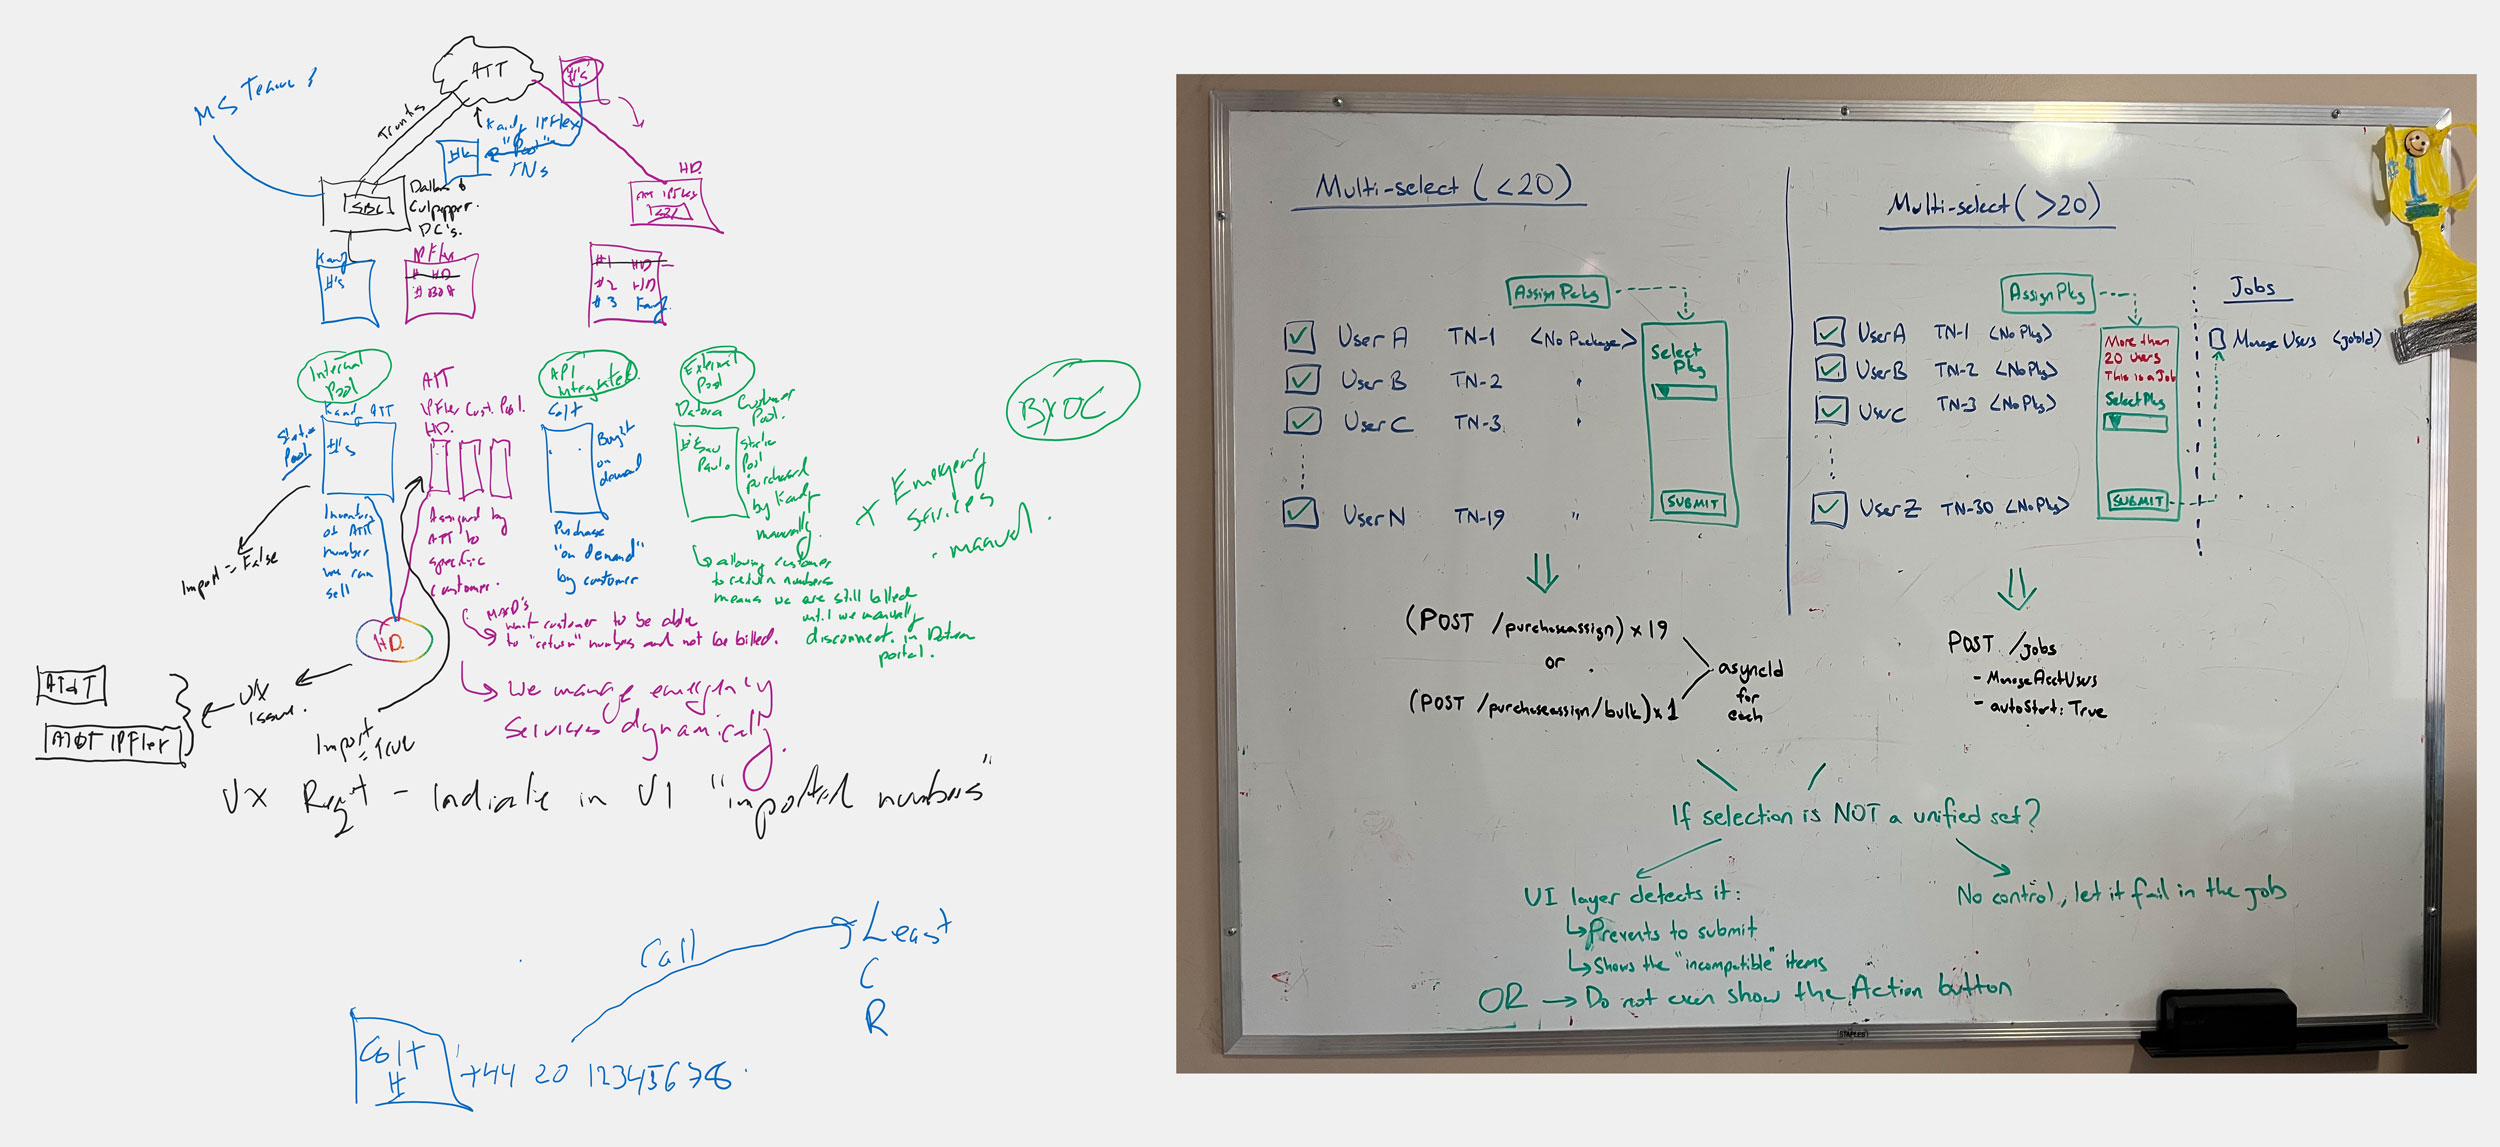 MS Teams
ATT
#'s
Trunks
Kandy IPFlex
"Pool"
TNs
SBC
Dallas &
Culpepper
DC's.
HD.
Kandy
#'s
IPFlex
# HD
#1 HD
#2 HD
#3 Kandy
Internal
Pool
ATT
IPFlex Cust. Pool.
HD.
API
integrated
Colt
External
Pool
Customer
Pool.
BYOC
Kandy ATT
Static
Pool
#'s
Buy it
on
demand
Sao
Paulo
Static
Pool
purchased
by Kandy
manually.
X Emergency
Services
- manual.
Import = False
Inventory
of ATT
number
we can
sell
Assigned by
ATT to
specific
customer.
Purchase
"on demand"
by customer
allowing customer
to return numbers
means we are still billed
until we manually
disconnect in
portal.
HD.
want customer to be able
to "return" numbers and not be billed.
AT&T
AT&T IPFlex
UX
issue.
We manage emergency
Services dynamically.
Import
= True
UX Reqt - Indicate in UI "imported numbers"
Call
Least
C
R
Colt
#
+44 20 12345678
Multi-select (<20)
Assign Pckg
User A TN-1 <No Package>
User B TN-2 "
User C TN-3 "
User N TN-19 "
Select
Pkg
SUBMIT
(POST /purchaseassign) x 19
or
(POST /purchaseassign/bulk) x 1
asyncId
for
each
Multi-select (>20)
Assign Pkg
User A TN-1 <No Pkg>
User B TN-2 <No Pkg>
User C TN-3 <No Pkg>
User Z TN-30 <No Pkg>
More than
20 users
This is a Job
Select Pkg
SUBMIT
Jobs
Manage Users <jobId>
POST /jobs
- ManageAcctUsers
- autoStart: True
If selection is NOT a unified set?
UI layer detects it:
Prevents to submit
Shows the "incompatible" items
OR → Do not even show the Action button
No control, let it fail in the job
#1
STAPLES